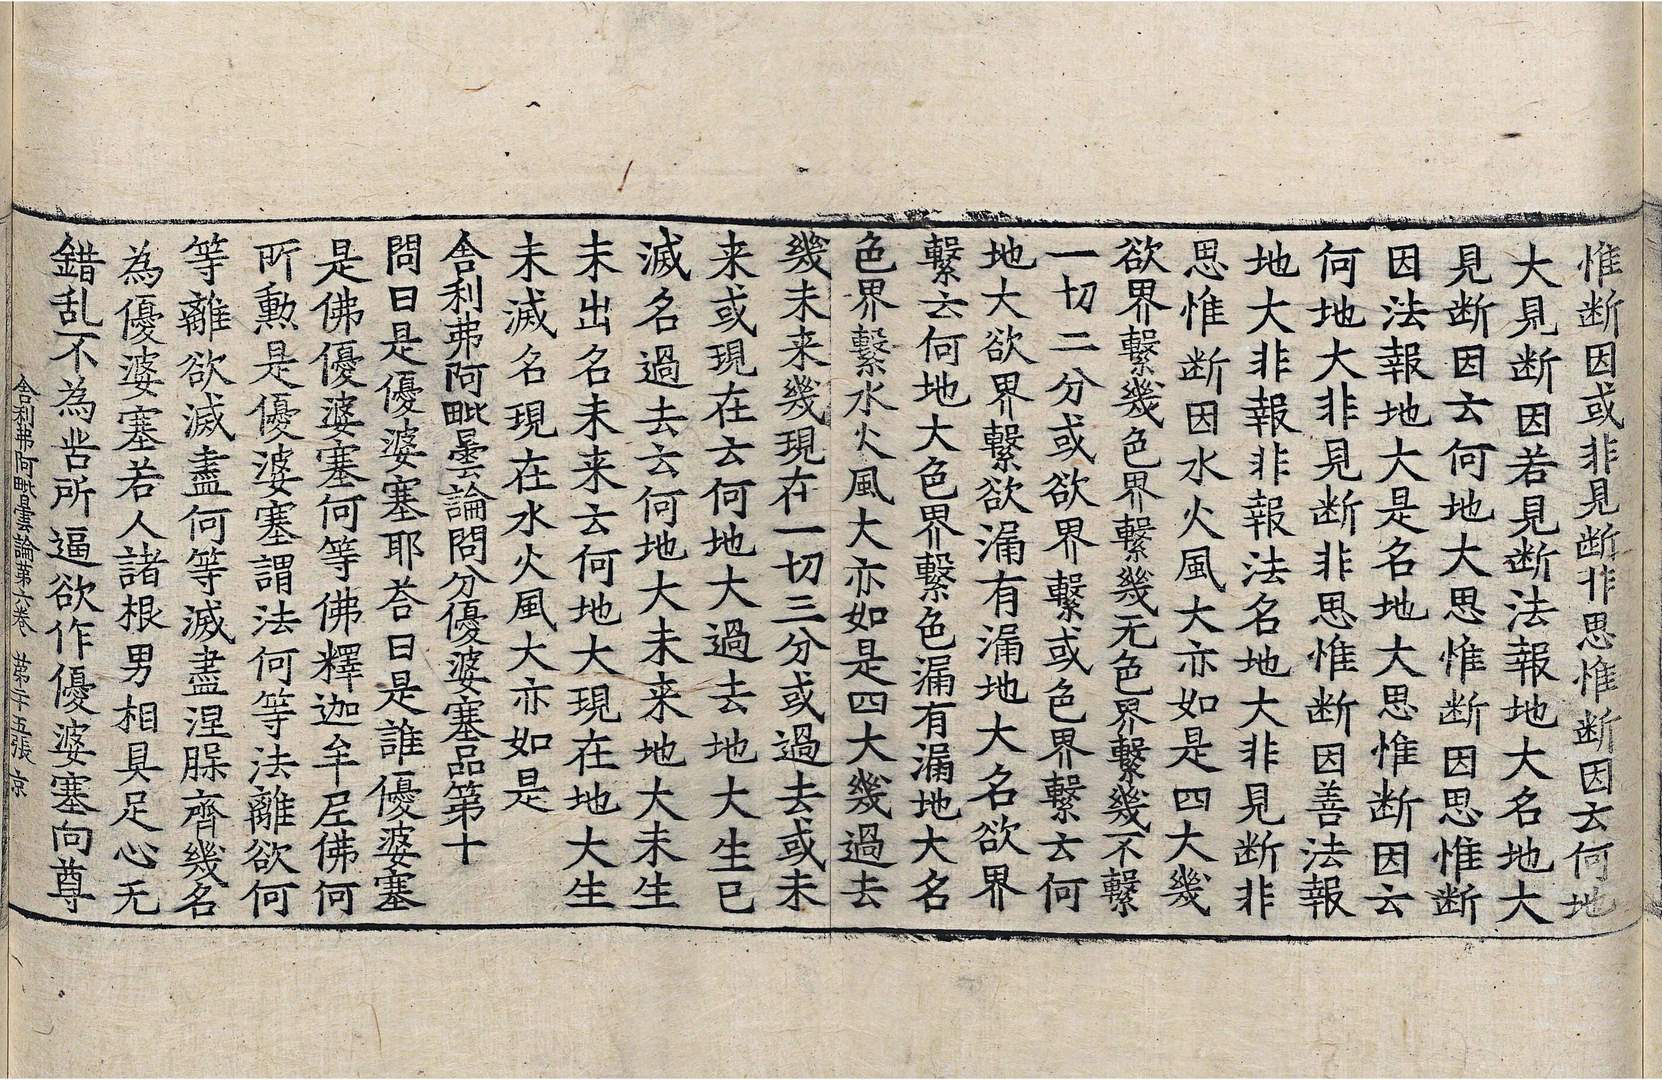 惟断因或非見断非思惟断因云何地
大見断因若見断法報地大名地大
見断因云何地大思惟断因思惟断
因法報地大是名地大思惟断因云
何地大非見断非思惟断因善法報
地大非報非報法名地大非見断非
思惟断因水火風大亦如是四大幾
欲界繫幾色界繫幾无色界繫幾不繫
一切二分或欲界繫或色界繫云何
地大欲界繫欲漏有漏地大名欲界
繫云何地大色界繫色漏有漏地大名
色界繫水火風大亦如是四大幾過去
幾未来幾現在一切三分或過去或未
来或現在云何地大過去地大生已
滅名過去云何地大未来地大未生
未出名未来云何地大現在地大生
未滅名現在水火風大亦如是
舎利弗阿毗曇論問分優婆塞品第十
問曰是優婆塞耶荅曰是誰優婆塞
是佛優婆塞何等佛釋迦牟尼佛何
所勲是優婆塞謂法何等法離欲何
等離欲滅盡何等滅盡涅槃齊幾名
為優婆塞若人諸根男相具足心无
錯乱不為苦所逼欲作優婆塞向尊
舎利弗阿毗曇論第六卷 第二十五張 京